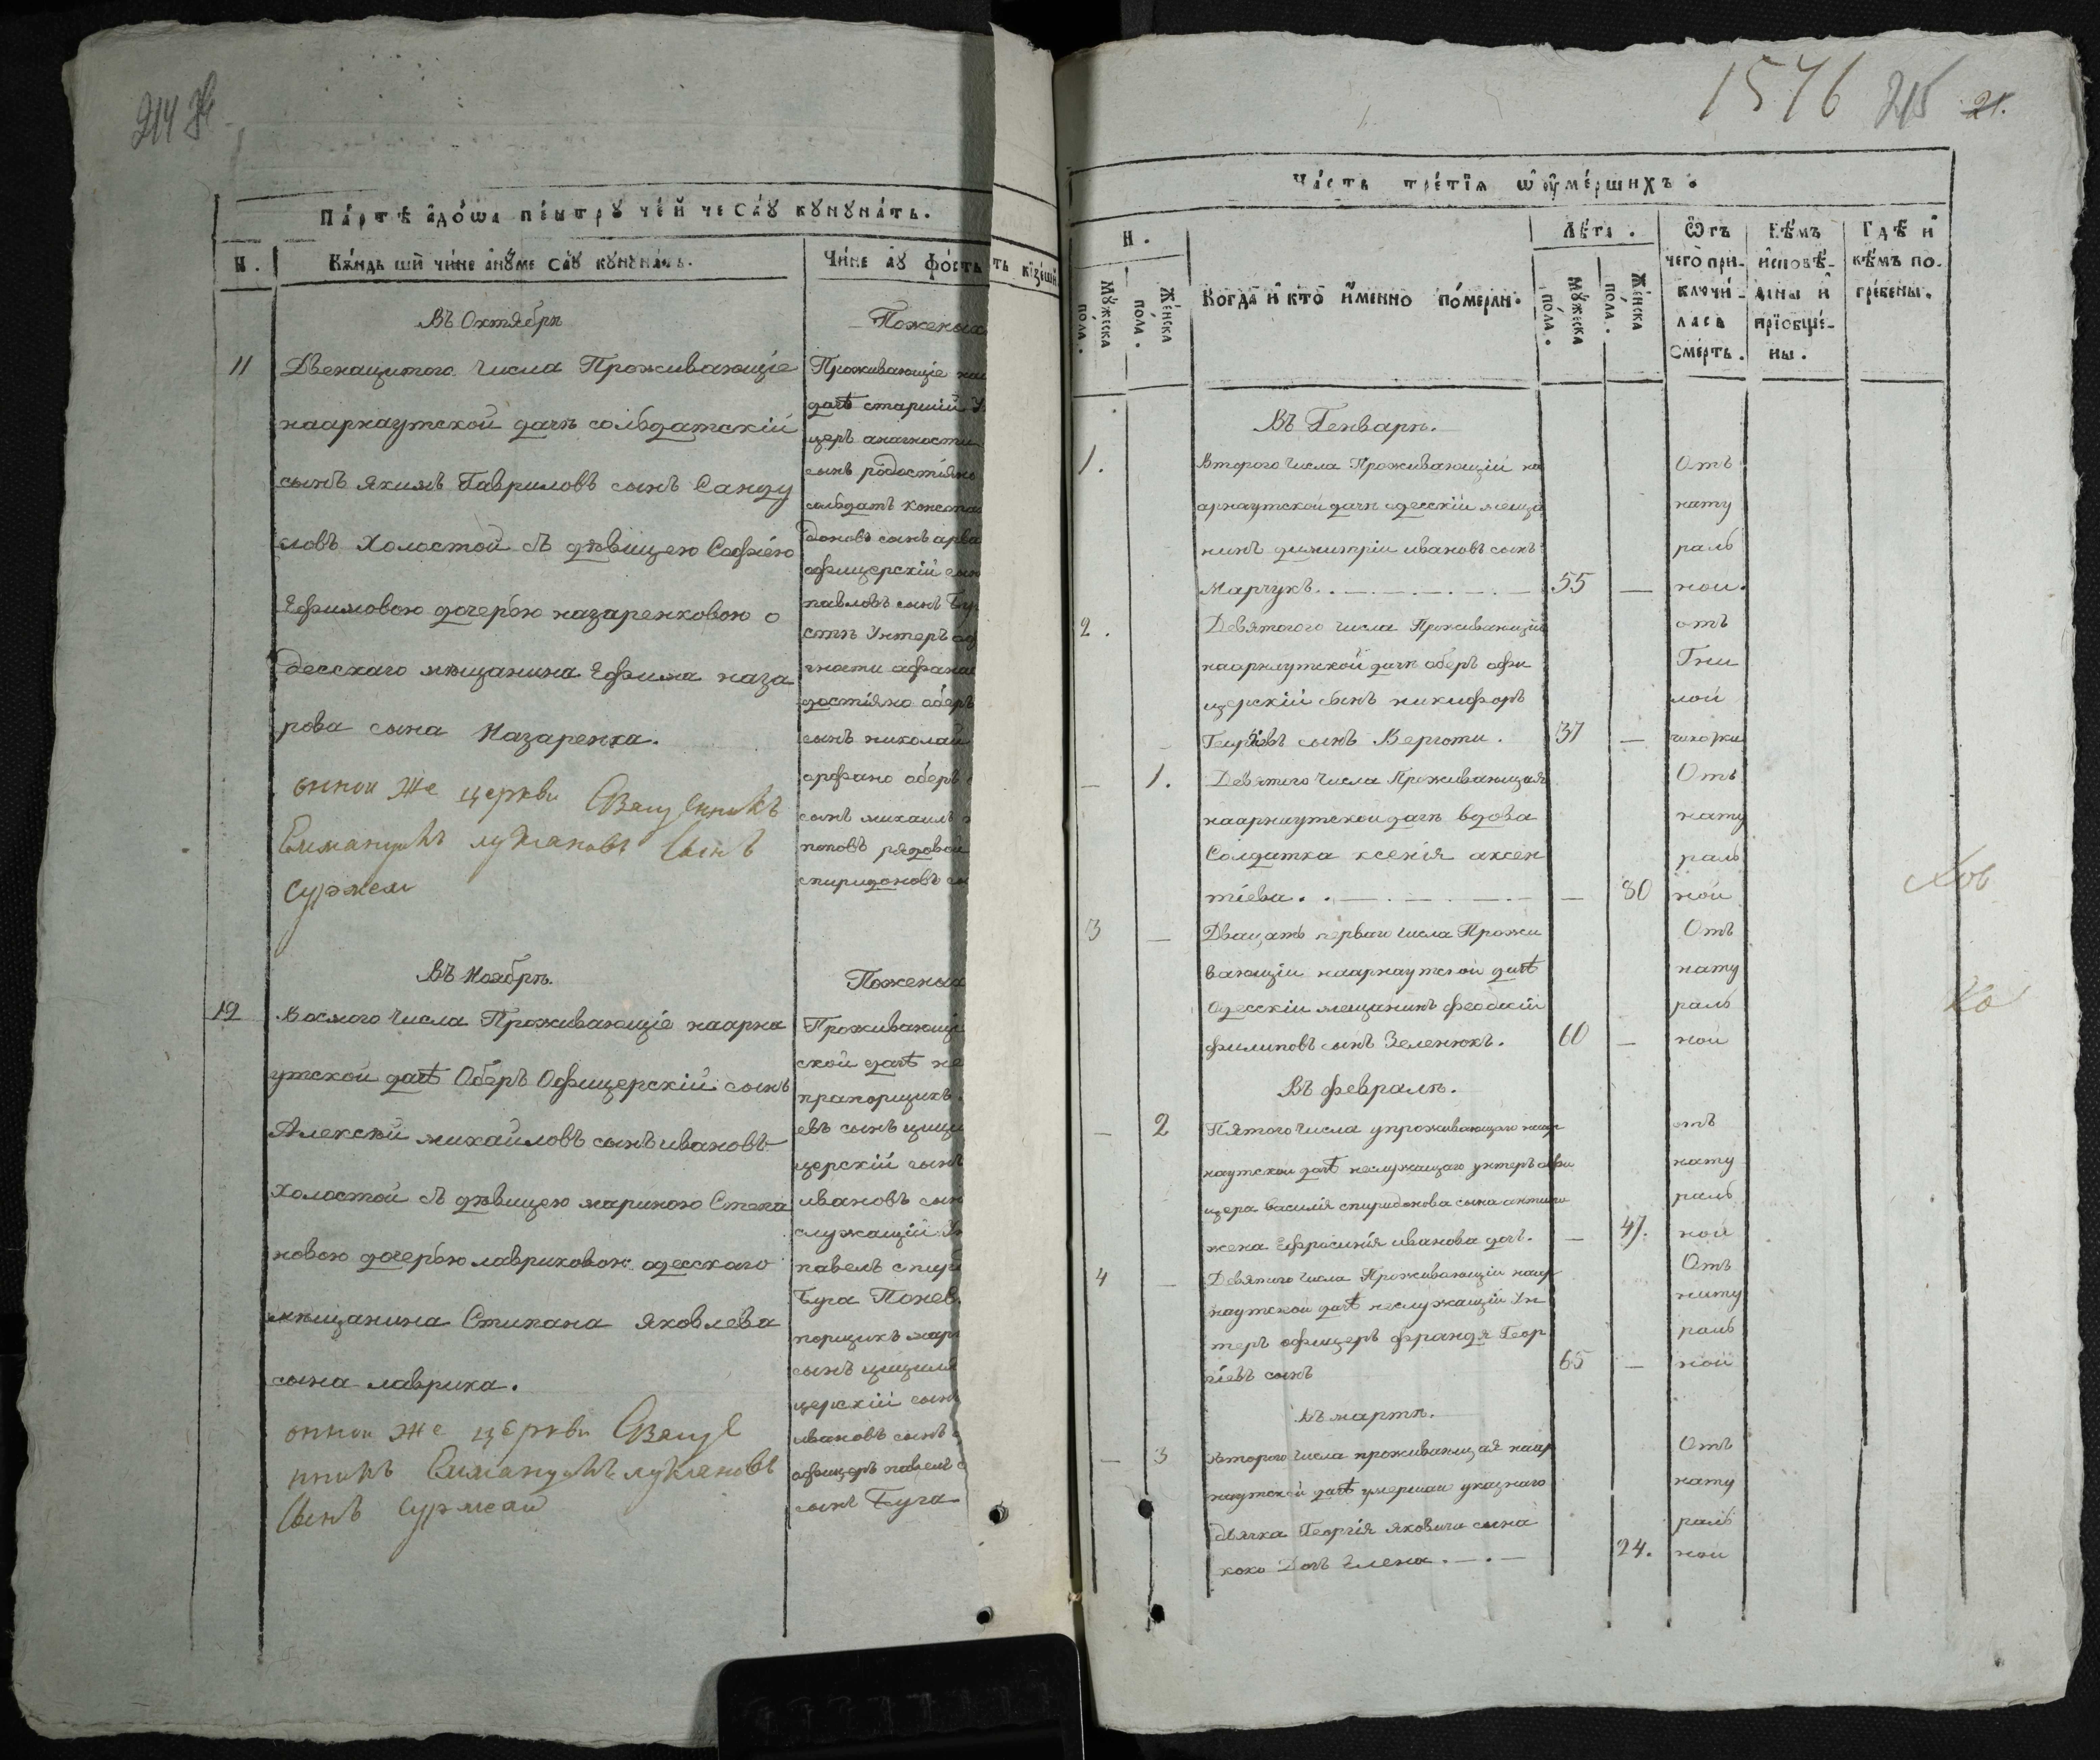 214
Па́ртѣ а҆до́ѡа пе́нтрꙋ че́й че са́ꙋ кꙋнꙋна́тъ.
Н.
Кѫндь ший чине анꙋме саꙋ кꙋнꙋнатъ.
Чи́не аꙋ фо́стъ
Въ Октябрѣ
Поженых
11
Двенацитого числа Проживающіе
наарнаутской дачѣ сольдатскій
сынъ якимъ Гавриловъ сынъ Санду
ловъ Холостой съ дѣвицею Софіею
Ефимовою дочерью назаренковою о
десскаго мѣщанина Ефима наза
рова сына Назаренка.
оннои же церкви Священникъ
Еммануилъ лукіановъ сынъ
Проживающіе на
дачѣ старшій у
церъ анагности
сынъ родостіяно
сольдатъ конста
доновъ сынъ арва
офицерскій сын
павловъ сынъ Бу
сти Унтеръ оф
гности афана
достіяно оберъ
сынъ николай
орфано оберъ
сынъ михаилъ
поповъ рядовой
спиридоновъ сы
Въ Ноябрѣ.
Поженых
12
Восмого числа Проживающіе наарна
утской дачѣ Оберъ Офицерскій сынъ
Алексѣй михайловъ сынъ ивановъ
Холостой съ дѣвицею мариною Степа
новою дочерью лавриковою одесскаго
мѣщанина Стипана яковлева
сына лаврика.
оннои же церкви Свяще
нникъ Еммануилъ лукіановъ
сынъ
Проживающі
ской дачѣ не
прапорщикъ
евъ сынъ цици
церскій сынъ
ивановъ сын
служащій Ун
павелъ спир
Буга Понев.
порщикъ мар
сынъ цицили
церскій сынъ
ивановъ сынъ
офицеръ павелъ с
сынъ Буга
1576 215 21.
Ча́сть тре́тїѧ ѡ҆ ᲂу҆ме́ршихъ.
Н.
Мꙋжеска пола.
Же́нска пола.
Когда̀ и҆ кто̀ и҆́менно по́мерли.
Лѣта.
Мꙋжеска пола.
Же́нска пола.
Ѿ чего̀ приключи́лась сме́рть.
Кѣ́мъ и҆сповѣ́даны и҆ прїѡбще́ны.
Гдѣ̀ и҆ кѣ́мъ погребены̀.
Въ Генварѣ.
1.
Второго числа Проживающій на
арнаутской дачѣ одесскій мещя
нинъ димитріи ивановъ сынъ
Марчукъ. 55 —
Отъ
нату
раль
нои.
2.
Девятогого числа Проживающій
наарнаутской дачѣ оберъ офи
церскій сынъ никифоръ
Георгіевъ сынъ Верготи. 37 —
отъ
Гни
лой
чихотки
— 1.
Девятого числа Проживающая
наарнаутской дачѣ вдова
Солдатка ксенія аксен
тіева. — 80
Отъ
нату
раль
ной
3 —
Двацать перваго числа Прожи
вающіи наарнаутской дачѣ
Одесскіи мещанинъ феодосій
филиповъ сынъ Зеленюкъ. 60 —
Отъ
нату
раль
ной
Въ февралѣ.
— 2
Пятого числа упроживающаго наар
наутской дачѣ неслужащаго унтеръ офи
цера василія спиридонова сына
жена Ефросинія иванова дочь. — 47.
отъ
нату
раль
ной
4 —
Девятого числа Проживающіи наар
наутской дачѣ неслужащій Ун
теръ офицеръ франдя Геор
гіевъ сынъ 65 —
Отъ
нату
раль
ной
Въ мартѣ.
— 3
Второго числа проживающая наар
наутской дачѣ умершаи указнаго
дячка Георгія яковича сына
коко Дочъ Елена. 24.
Отъ
нату
раль
нои